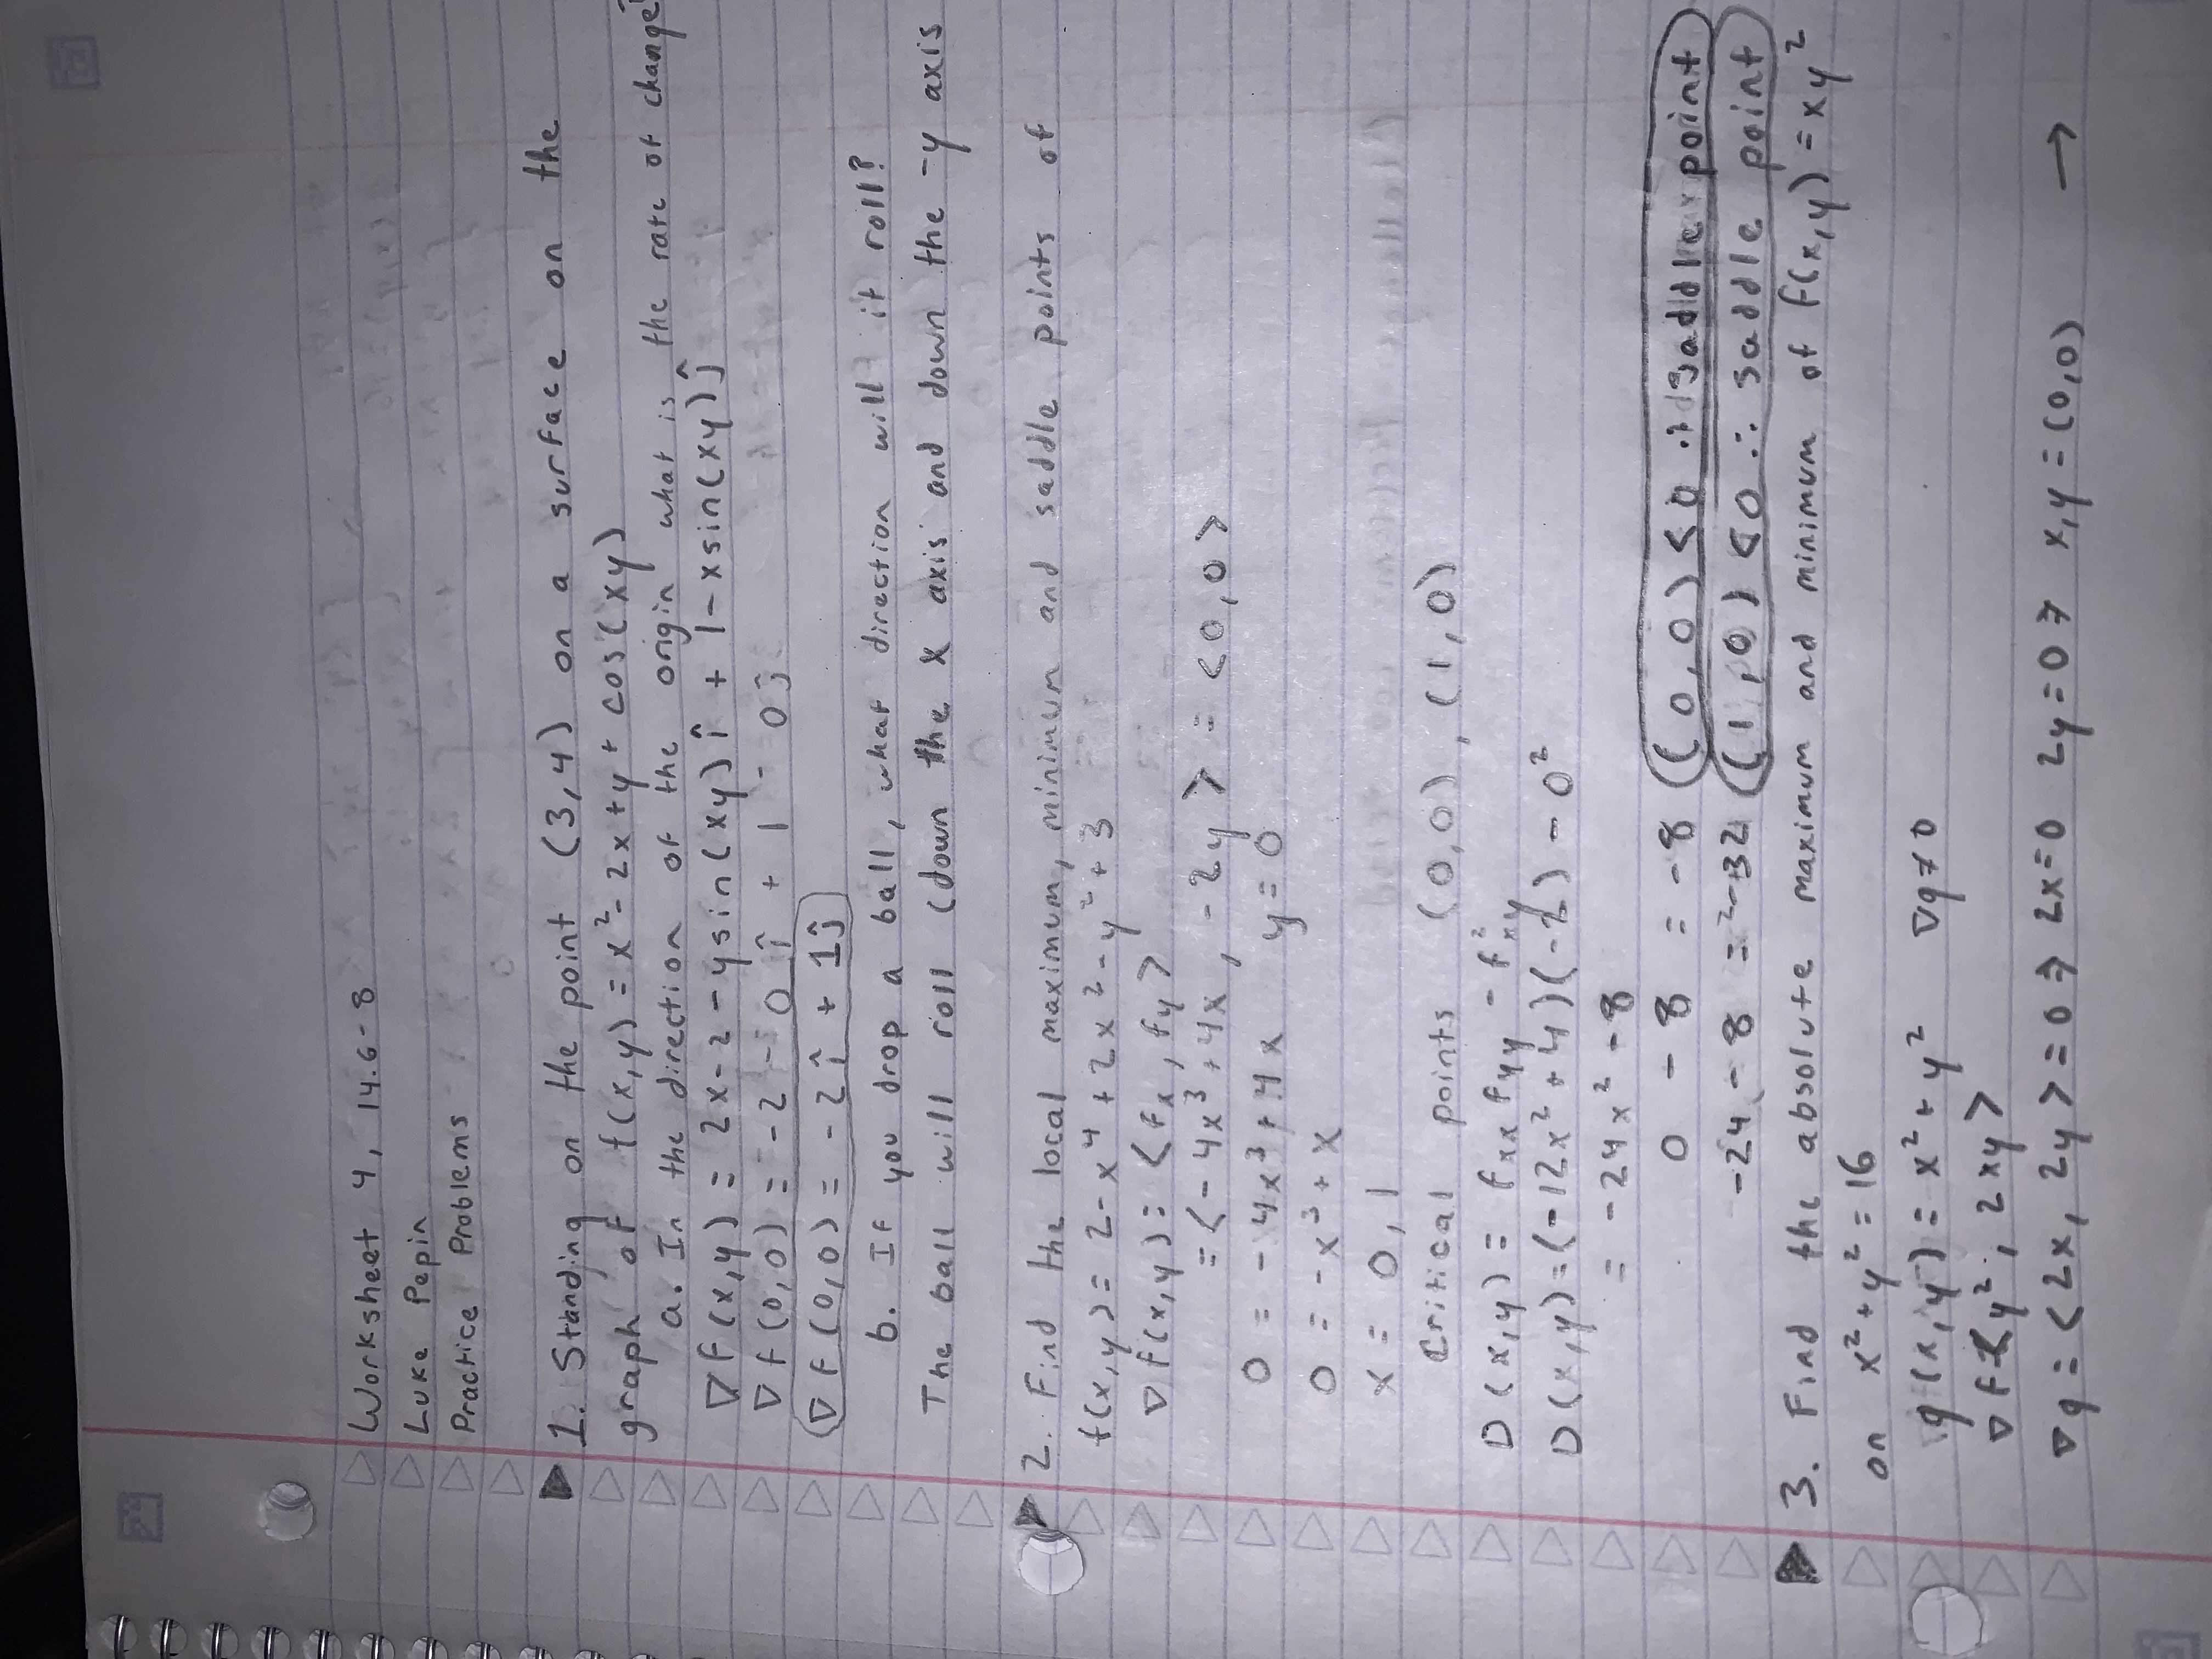 Worksheet 4, 14.6-8
Luke Pepin
Practice Problems
1. Standing on the point (3,4) on a surface on the
graph of f(x,y) = x² - 2x + y + cos(xy)
a. In the direction of the origin what is the rate of change?
∇f(x,y) = 2x-2-ysin(xy) î + 1-xsin(xy) ĵ
∇f(0,0) = -2 - 0 î + 1 - 0 ĵ
∇f(0,0) = -2î + 1ĵ
b. If you drop a ball, what direction will it roll?
The ball will roll (down the x axis and down the -y axis
2. Find the local maximum, minimum and saddle points of
f(x,y) = 2-x⁴ + 2x² - y² + 3
∇f(x,y) = <fx, fy>
= <-4x³ + 4x, -2y> = <0,0>
0 = -4x³ + 4x y = 0
0 = -x³ + x
x = 0, 1
Critical points (0,0), (1,0)
D(x,y) = fxx fyy - f²xy
D(x,y) = (-12x² + 4)(-2) - 0²
= -24x² - 8
0 - 8 = -8 (0,0) < 0 ∴ saddle point
-24 - 8 = -32 (1,0) < 0 ∴ saddle point
3. Find the absolute maximum and minimum of f(x,y) = xy²
on x² + y² = 16
g(x,y) = x² + y² ∇g ≠ 0
∇f <y², 2xy>
∇g = <2x, 2y> = 0 ⇒ 2x=0 2y=0 ⇒ x,y = (0,0) →